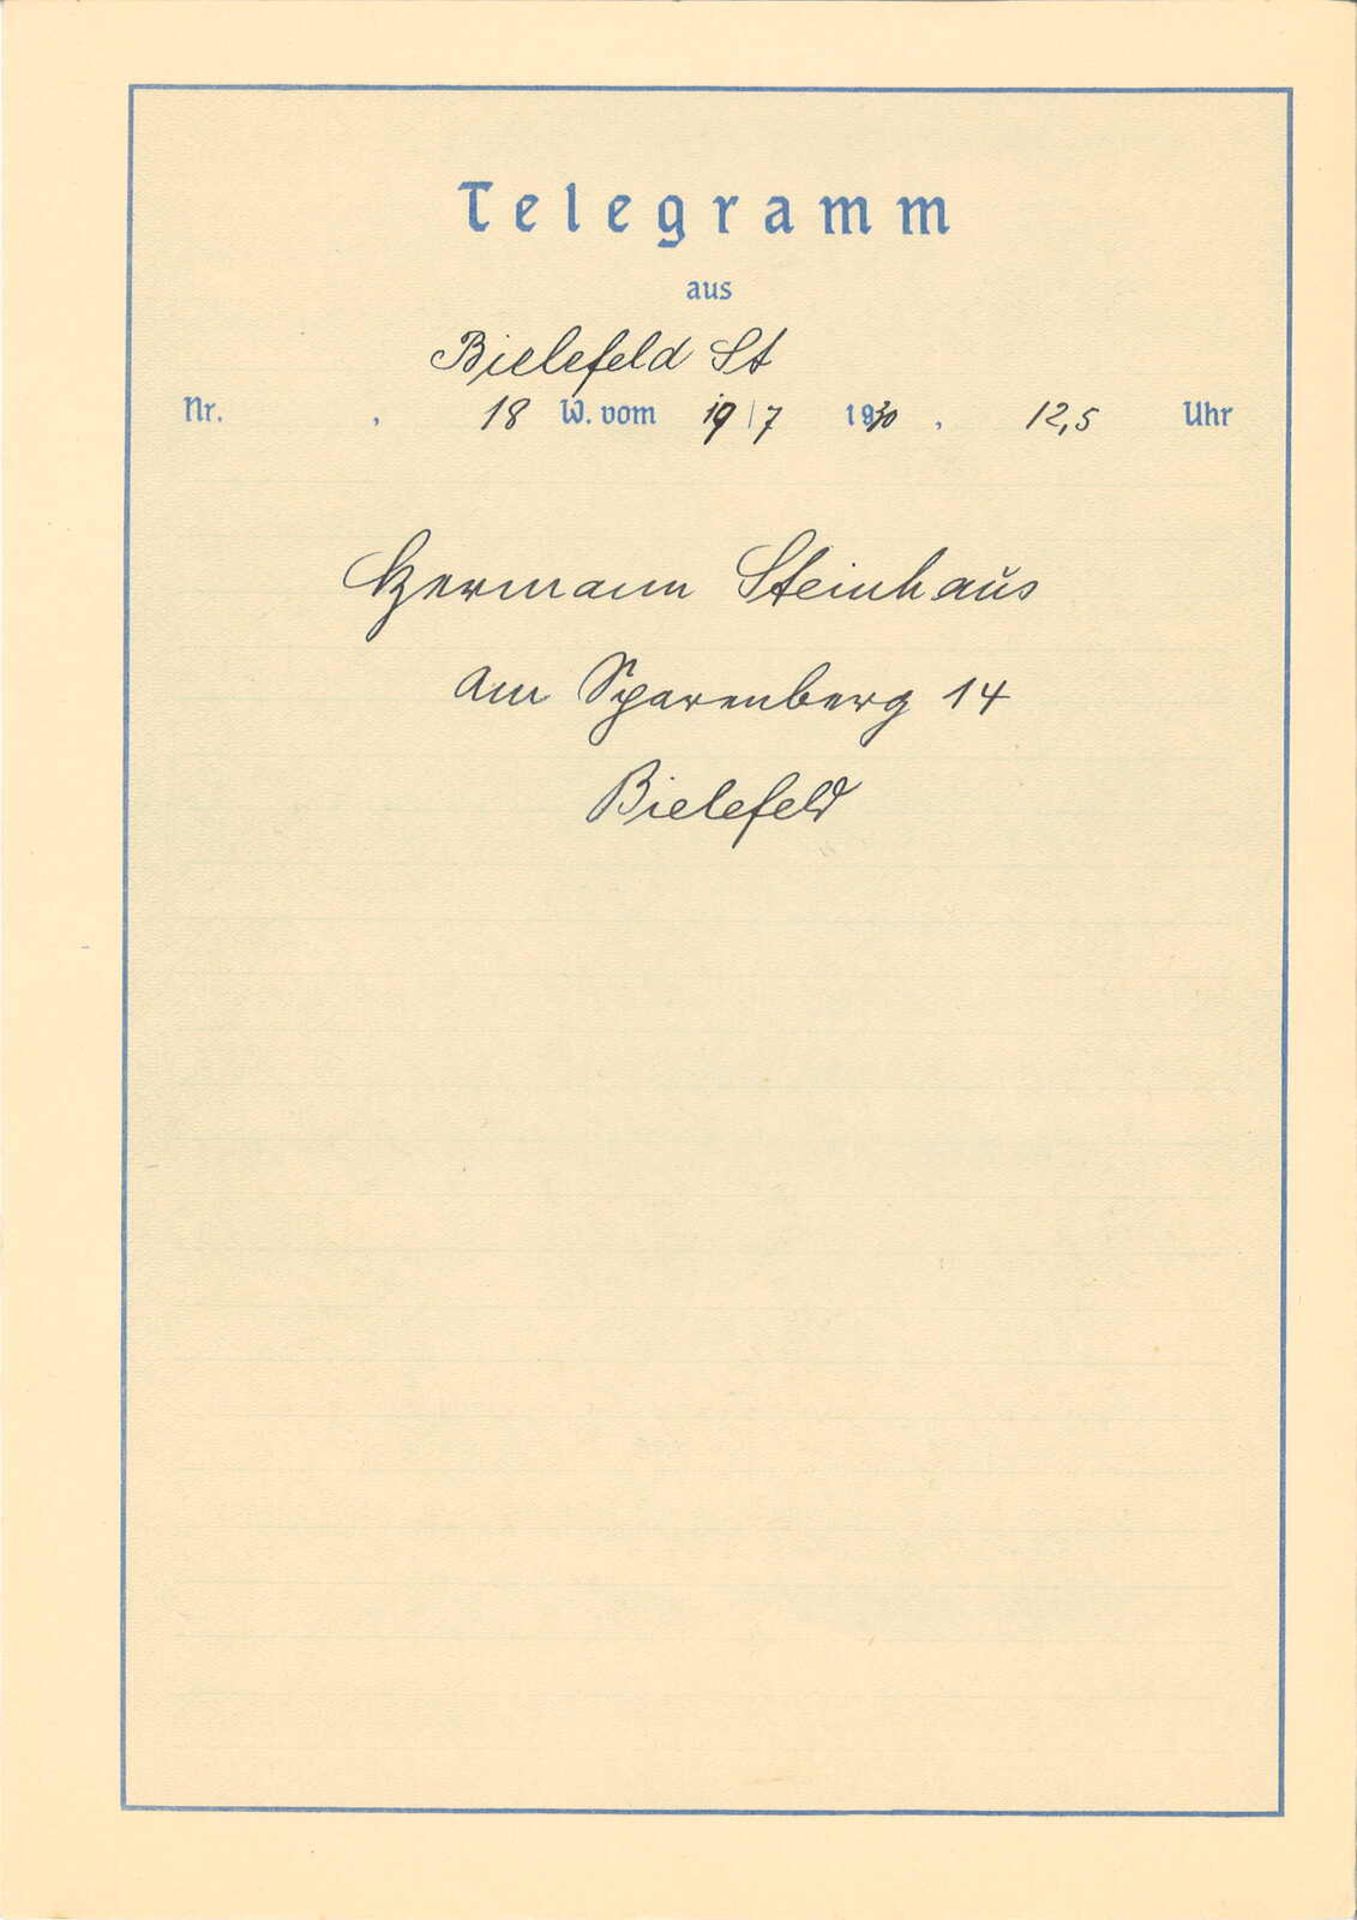 Telegramm
aus
Bielefeld St
Nr. , 18 W. vom 19/7 1930, 12,5 Uhr
Hermann Steinhaus
am Sparenberg 14
Bielefeld